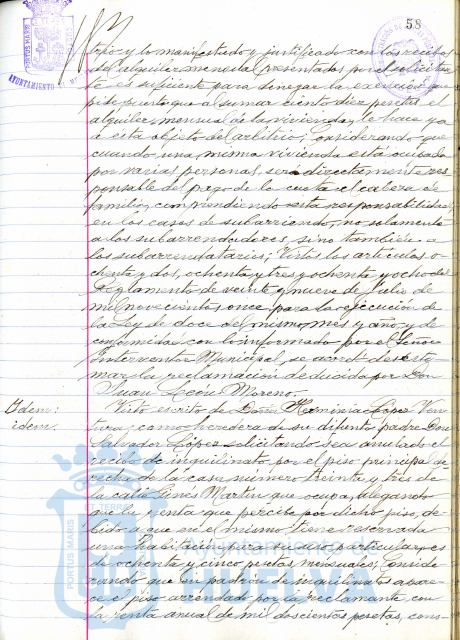 58
trio y lo manifestado y justificado con los recibos
del alquiler mensual presentados por el solicitan-
te es suficiente para denegar la exención que
pide puesto que al sumar ciento diez pesetas el
alquiler mensual de la vivienda, le hace ya
a esta objeto del arbitrio; Considerando que
cuando una misma vivienda está ocupada
por varias personas, será directamente res-
ponsable del pago de la cuota el cabeza de
familia, comprendiendo esta responsabilidad,
en los casos de subarriendo, no solamente
a los subarrendadores, sino también a
los subarrendatarios; Vistos los artículos o-
chenta y dos, ochenta y tres y ochenta y ocho del
Reglamento de veinte y nueve de Julio de
mil novecientos once para la ejecución de
la Ley de doce del mismo mes y año, y de
conformidad con lo informado por el Señor
Interventor Municipal, se acordó desesti-
mar la reclamación deducida por Don
Juan León Moreno.
Idem:
idem.
Visto escrito de Doña Herminia López Ven-
tura, como heredera de su difunto padre Don
Salvador López solicitando sea anulado el
recibo de inquilinato por el piso principal de-
recha de la casa número treinta y tres de
la calle Ginés Martín que ocupa, alegando
que la renta que percibe por dicho piso, de-
bido a que en el mismo tiene reservada
una habitación para su uso particular, es
de ochenta y cinco pesetas mensuales; Conside-
rando que en padrón de inquilinatos apare-
ce el piso arrendado por la reclamante con
la renta anual de mil doscientos pesetas, cons-
PORTUS MARIS
ET TERRIS
Ayuntamiento de
HUELVA